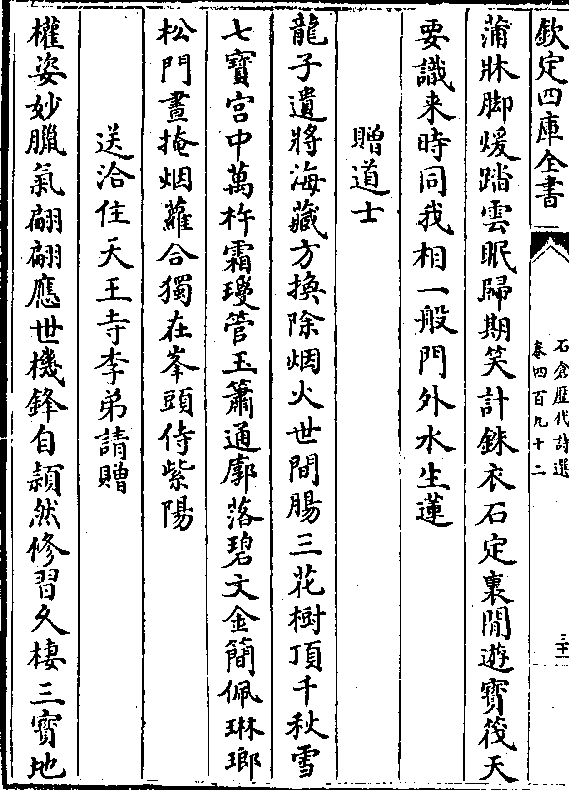 欽定四庫全書
石倉歷代詩選
卷四百九十二
三十一
蒲牀脚煖踏雲眠歸期笑計銖衣石定裏閒遊寳筏天
要識来時同我相一般門外水生蓮
贈道士
龍子遺將海藏方換除烟火世間腸三花樹頂千秋雪
七寳宫中萬杵霜瓊管玉簫通廓落碧文金簡佩琳瑯
松門晝掩烟蘿合獨在峯頭侍紫陽
送洽住天王寺李弟請贈
權姿妙臘氣翩翩應世機鋒自頴然修習久棲三寳地